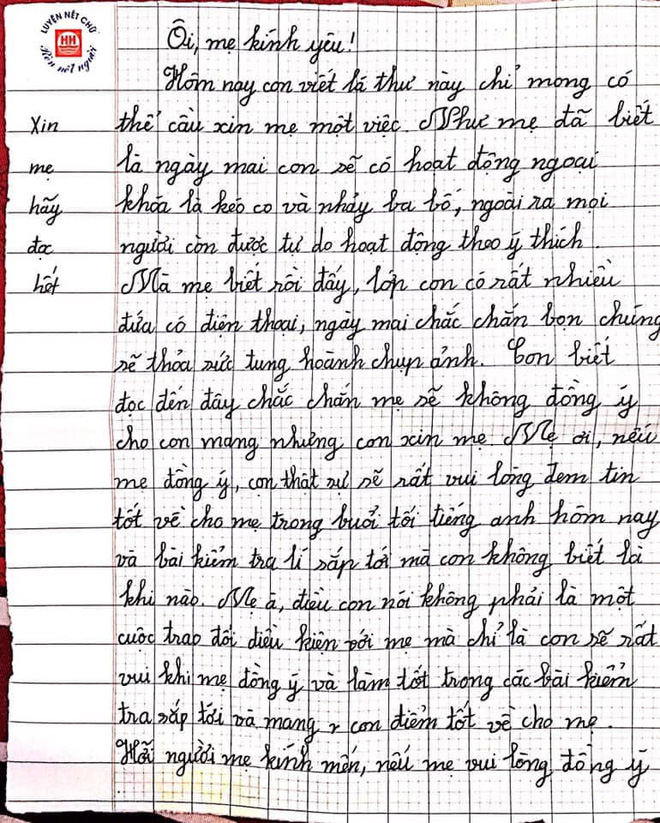 LUYỆN NÉT CHỮ
HH
Rèn nết người
Ôi, mẹ kính yêu!
Hôm nay con viết lá thư này chỉ mong có
thể cầu xin mẹ một việc. Như mẹ đã biết
là ngày mai con sẽ có hoạt động ngoại
khóa là kéo co và nhảy ba bố, ngoài ra mọi
người còn được tự do hoạt động theo ý thích.
Mà mẹ biết rồi đấy, lớp con có rất nhiều
đứa có điện thoại, ngày mai chắc chắn bọn chúng
sẽ thỏa sức tung hoành chụp ảnh. Con biết
đọc đến đây chắc chắn mẹ sẽ không đồng ý
cho con mang nhưng con xin mẹ. Mẹ ơi, nếu
mẹ đồng ý, con thật sự sẽ rất vui lòng đem tin
tốt về cho mẹ trong buổi tối tiếng anh hôm nay
và bài kiểm tra lí sắp tới mà con không biết là
khi nào. Mẹ à, điều con nói không phải là một
cuộc trao đổi điều kiện với mẹ mà chỉ là con sẽ rất
vui khi mẹ đồng ý và làm tốt trong các bài kiểm
tra sắp tới và mang r con điểm tốt về cho mẹ.
Hỡi người mẹ kính mến, nếu mẹ vui lòng đồng ý
Xin
mẹ
hãy
đọc
hết